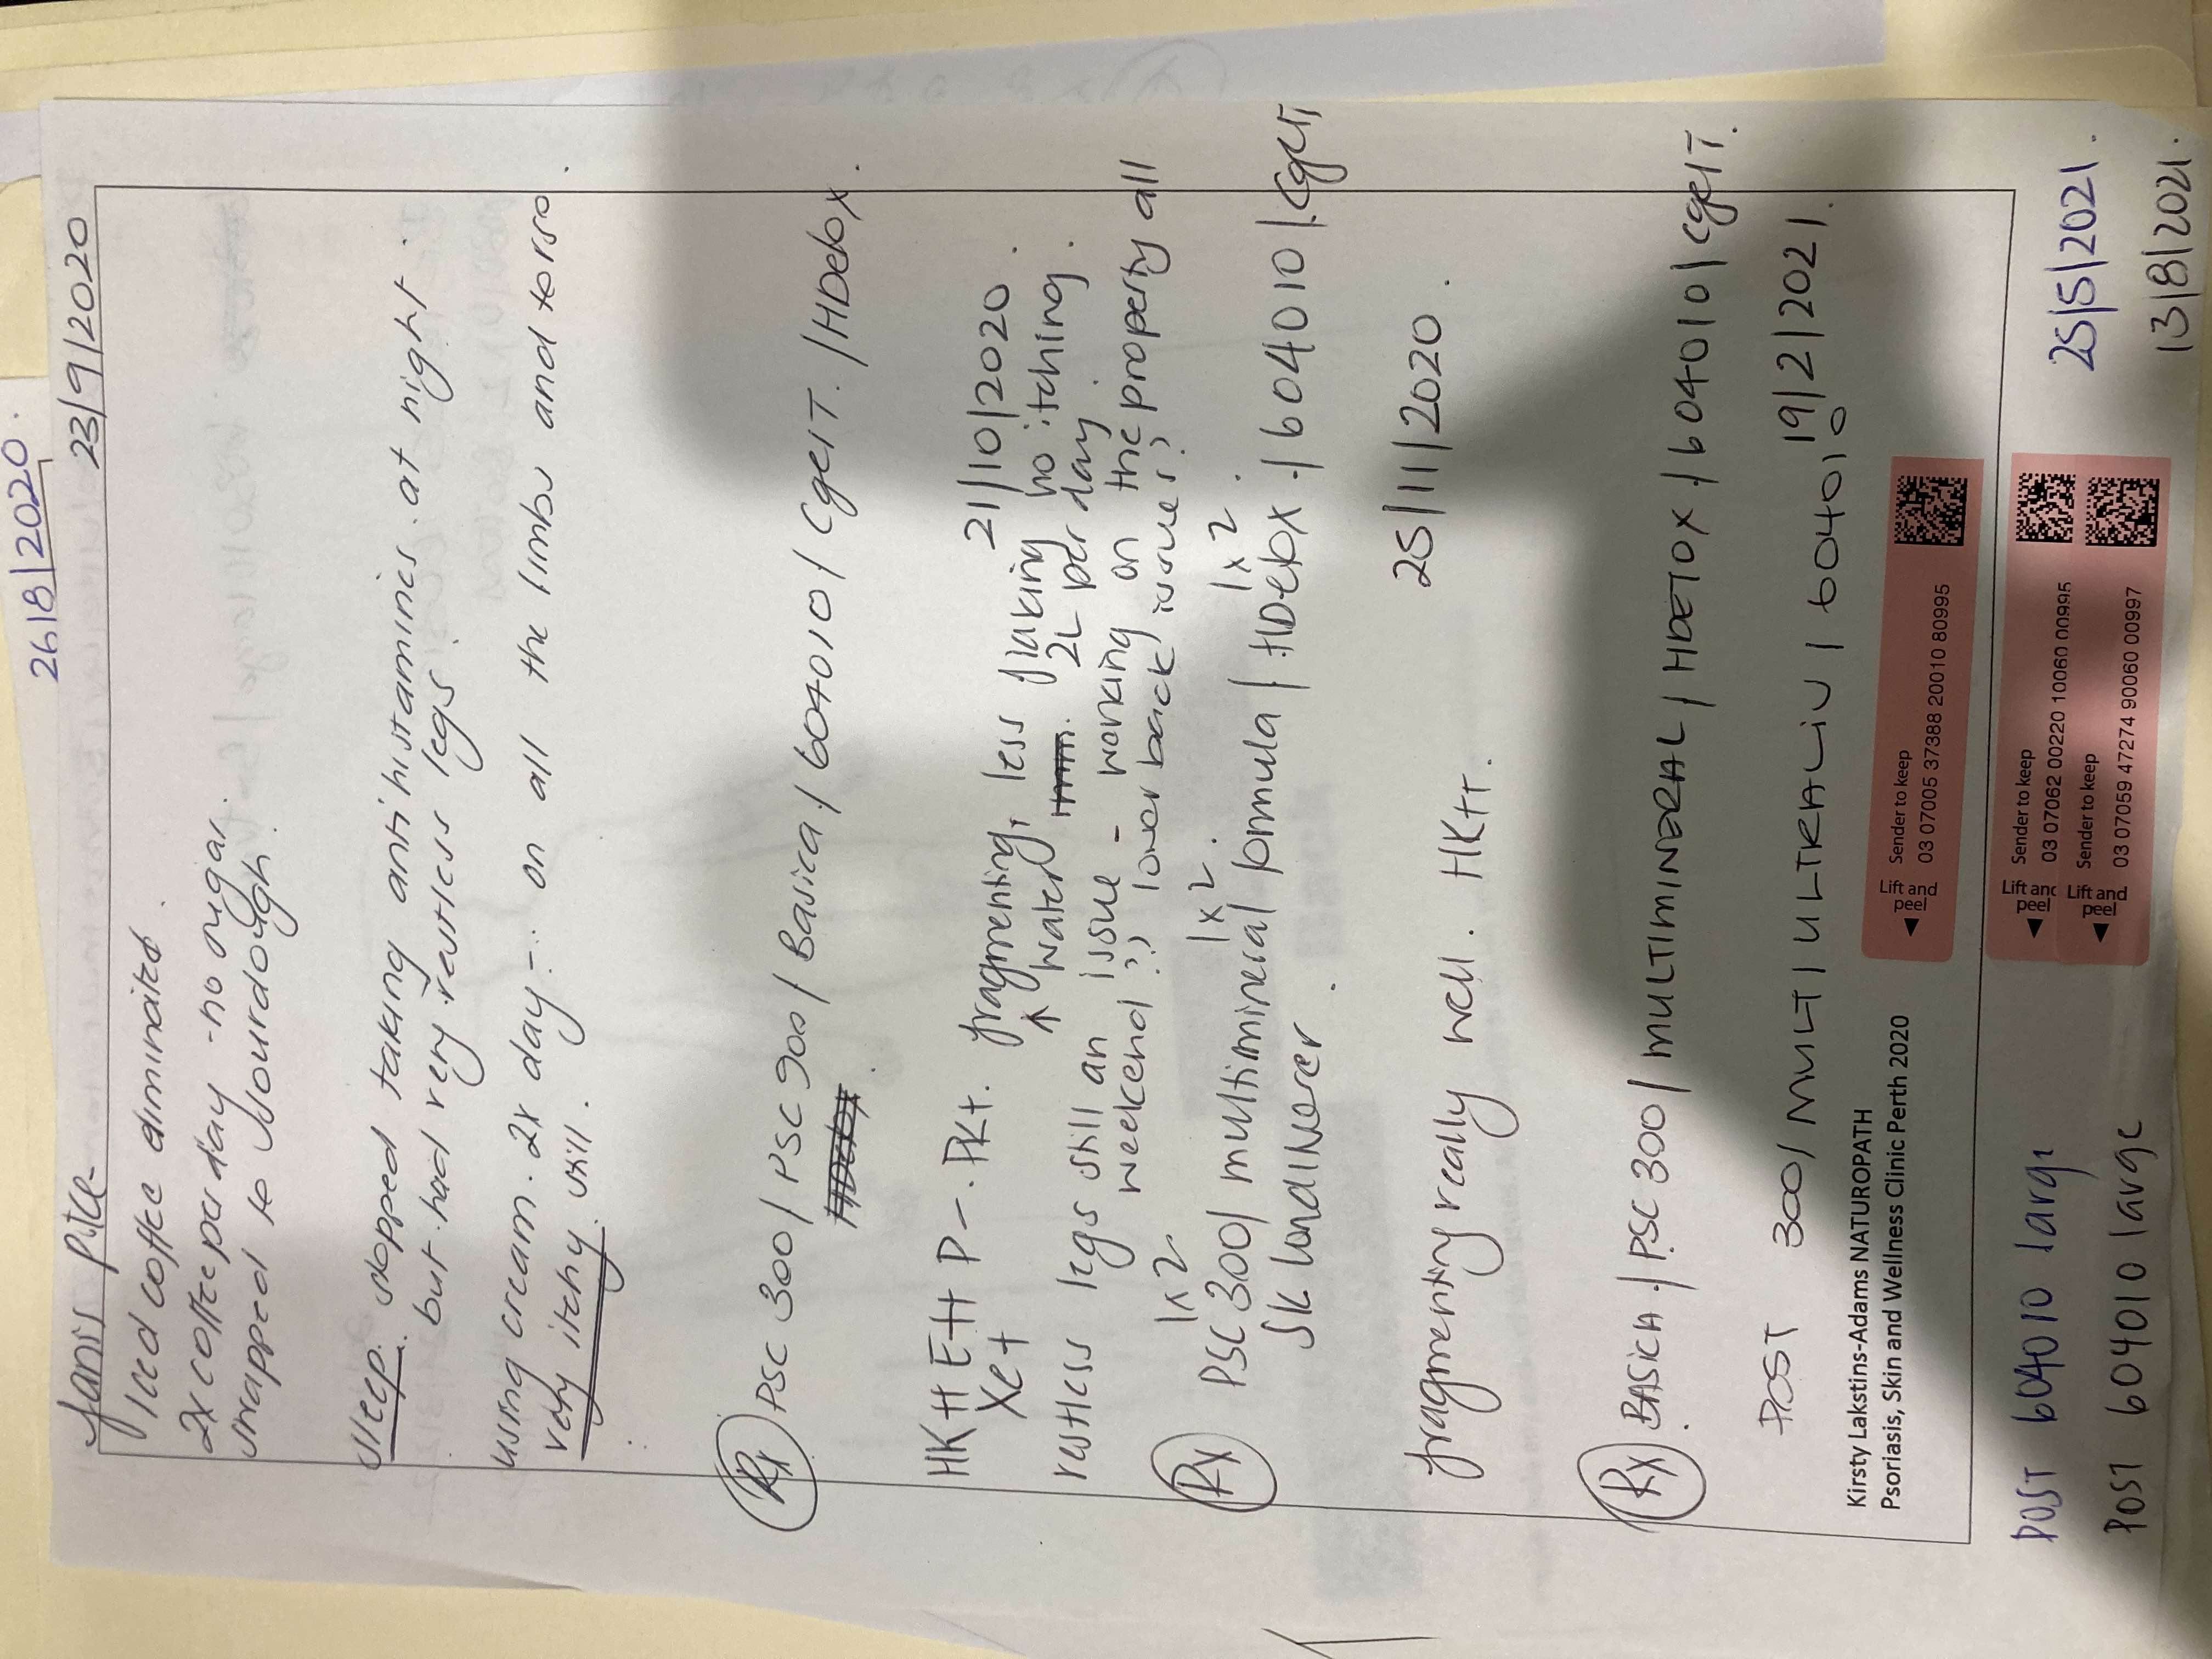 26/8/2020.
Janis Pike 23/9/2020
iced coffee eliminated.
2x coffee per day - no sugar.
swapped to sourdough.
sleep. stopped taking antihistamines at night.
but had very restless legs.
using cream. 2x day - on all the limbs and torso.
very itchy still.
Rx PSC 300 / PSC 900 / Basica / 604010 / CgelT. / HDetox.
21/10/2020.
HK++ E++ P-. PK+. fragmenting, less flaking no itching.
Xe+ ↑ water 2L per day.
restless legs still an issue - working on the property all
weekend ?? lower back issues?
1x2 1x2. 1x2.
Rx PSC 300/ multimineral formula / HDetox. / 604010 / CgelT
SK Landiverer.
25/11/2020.
fragmenting really well. HK++.
Rx BASICA / PSC 300 / MULTIMINERAL / HDETOX / 604010 / CgelT.
19/2/2021.
POST 300/ MULT / ULTRALIV / 604010
Kirsty Lakstins-Adams NATUROPATH
Psoriasis, Skin and Wellness Clinic Perth 2020
Lift and peel Sender to keep
03 07005 37388 20010 80995
POST 604010 large 25/5/2021.
Lift and peel Sender to keep
03 07062 00220 10060 00995
POST 604010 large 13/8/2021.
Lift and peel Sender to keep
03 07059 47274 90060 00997